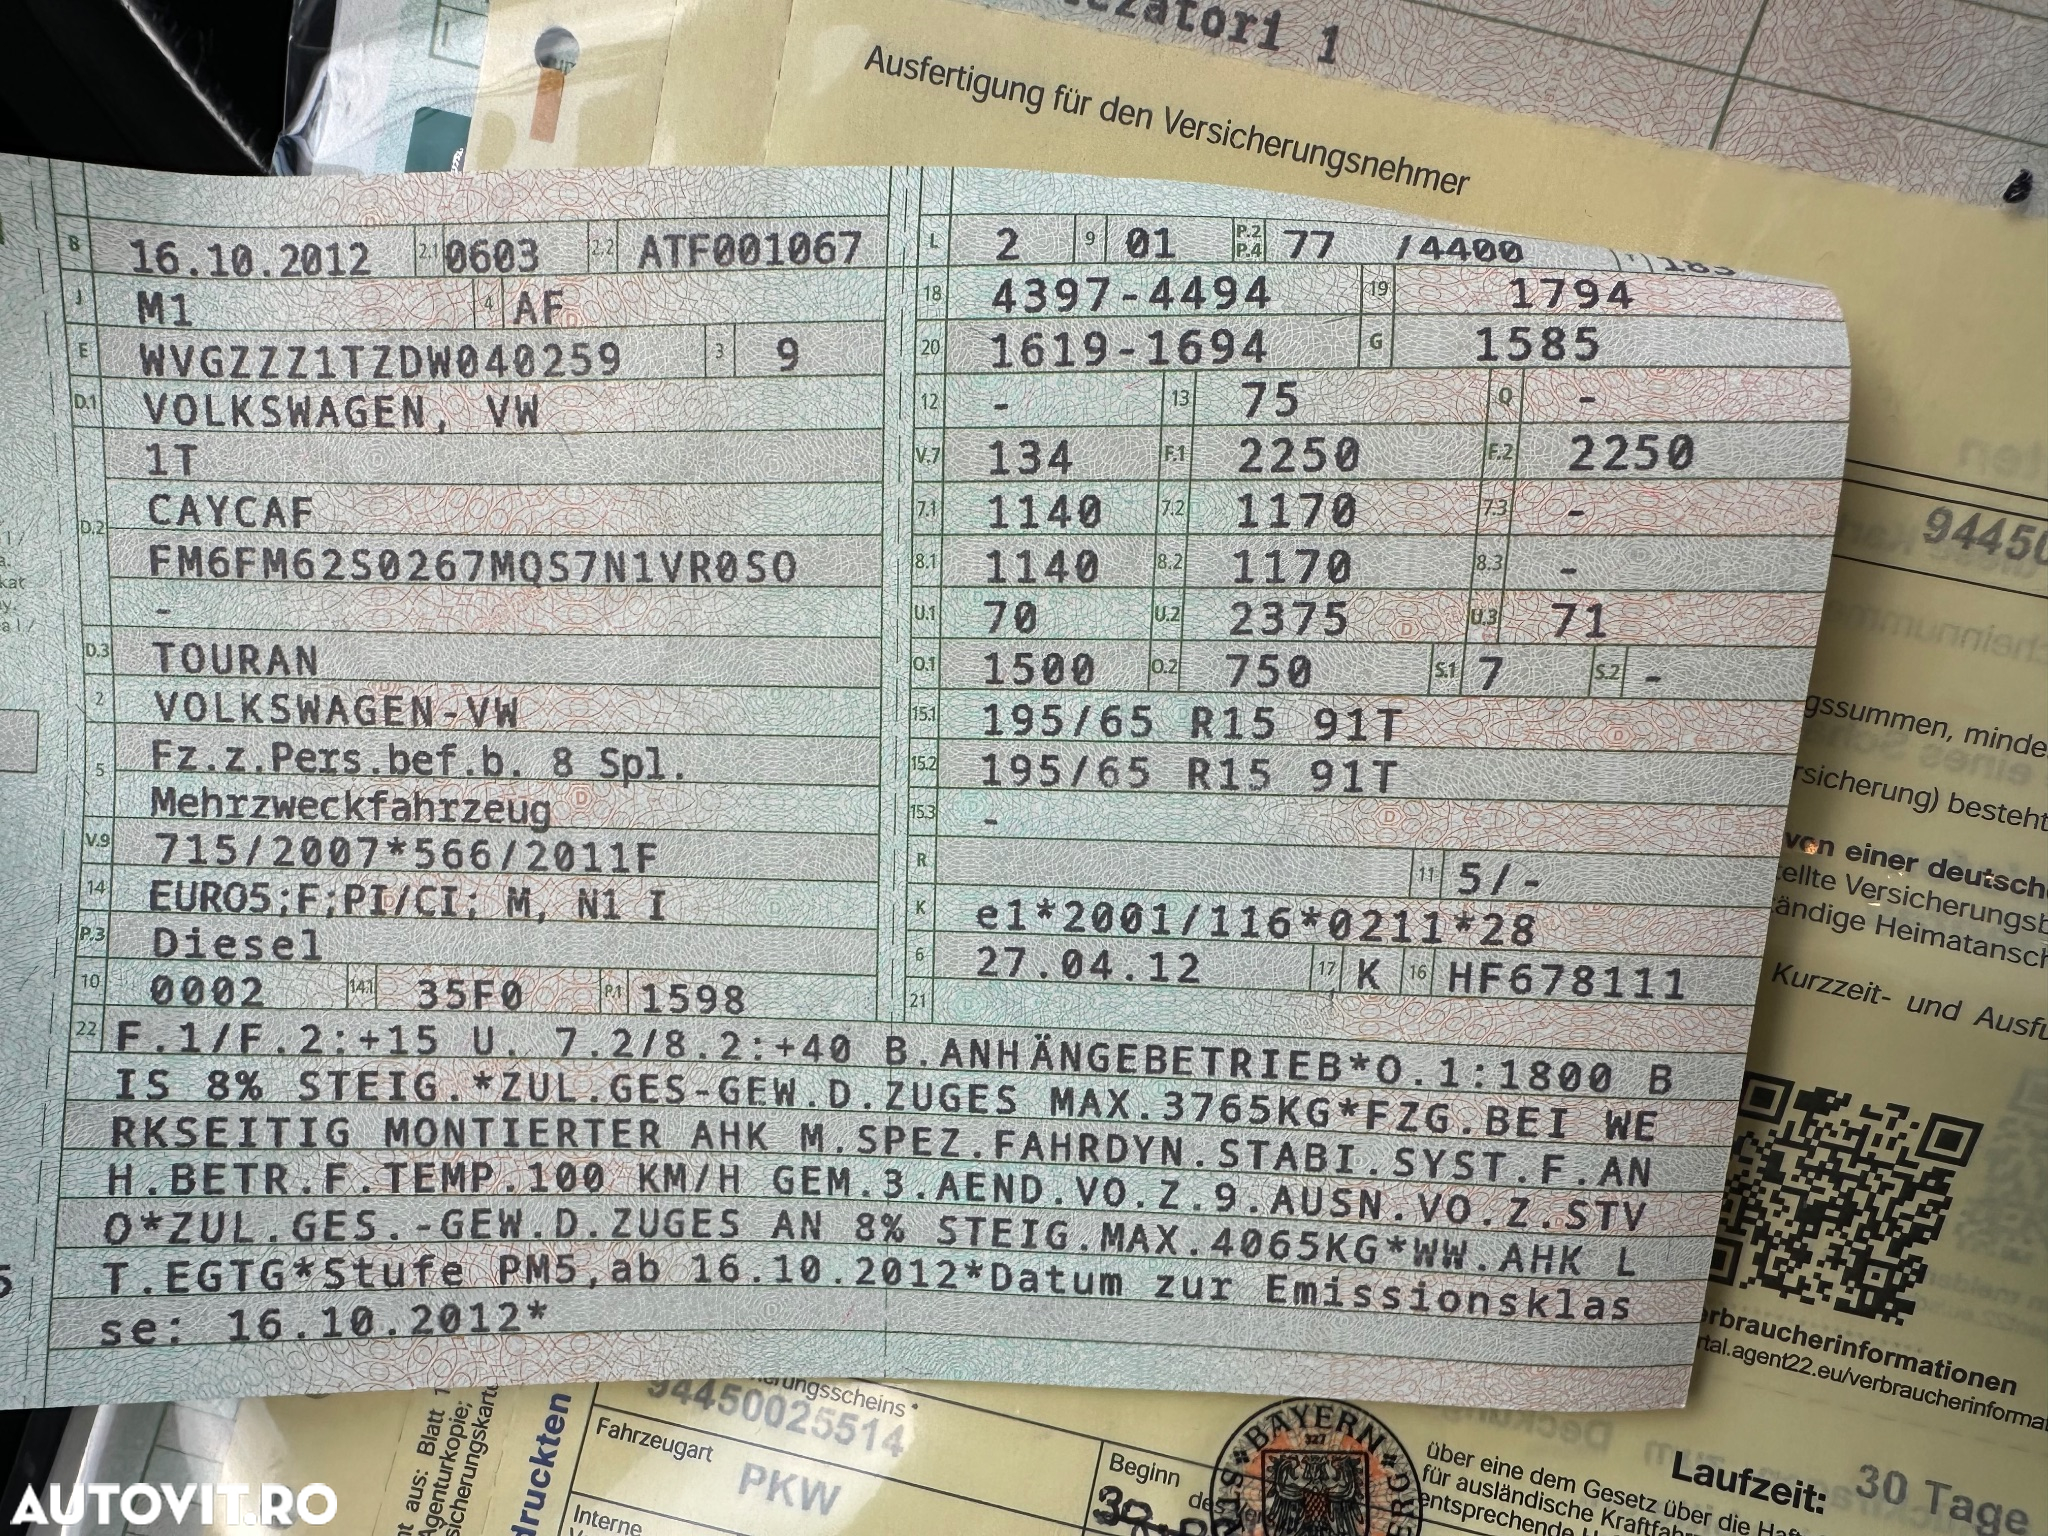 Ausfertigung für den Versicherungsnehmer
B 16.10.2012 2.1 0603 2.2 ATF001067
J M1 4 AF
E WVGZZZ1TZDW040259 3 9
D.1 VOLKSWAGEN, VW
1T
D.2 CAYCAF
FM6FM62S0267MQS7N1VR0SO
-
D.3 TOURAN
2 VOLKSWAGEN-VW
5 Fz.z.Pers.bef.b. 8 Spl.
Mehrzweckfahrzeug
V.9 715/2007*566/2011F
14 EURO5;F;PI/CI; M, N1 I
P.3 Diesel
10 0002 14.1 35F0 P.1 1598
L 2 9 01 P.2 P.4 77 /4400
18 4397-4494 19 1794
20 1619-1694 G 1585
12 - 13 75 Q -
V.7 134 F.1 2250 F.2 2250
7.1 1140 7.2 1170 7.3 -
8.1 1140 8.2 1170 8.3 -
U.1 70 U.2 2375 U.3 71
O.1 1500 O.2 750 S.1 7 S.2 -
15.1 195/65 R15 91T
15.2 195/65 R15 91T
15.3 -
R 11 5/-
K e1*2001/116*0211*28
6 27.04.12 17 K 16 HF678111
21
22 F.1/F.2:+15 U. 7.2/8.2:+40 B.ANHÄNGEBETRIEB*O.1:1800 B
IS 8% STEIG.*ZUL.GES-GEW.D.ZUGES MAX.3765KG*FZG.BEI WE
RKSEITIG MONTIERTER AHK M.SPEZ.FAHRDYN.STABI.SYST.F.AN
H.BETR.F.TEMP.100 KM/H GEM.3.AEND.VO.Z.9.AUSN.VO.Z.STV
O*ZUL.GES.-GEW.D.ZUGES AN 8% STEIG.MAX.4065KG*WW.AHK L
T.EGTG*Stufe PM5,ab 16.10.2012*Datum zur Emissionsklas
se: 16.10.2012*
94450
gssummen, minde
rsicherung) besteht
von einer deutsch
ellte Versicherungsb
ändige Heimatansch
Kurzzeit- und Ausfu
erbraucherinformationen
rtal.agent22.eu/verbraucherinformat
94450025514
Fahrzeugart
PKW
Interne
Beginn
des
BAYERN
327
über eine dem Gesetz über die Haft
für ausländische Kraftfahr
entsprechende
Laufzeit: 30 Tage
aus: Blatt 1
Agenturkopie;
sicherungskarte
druckten
AUTOVIT.RO